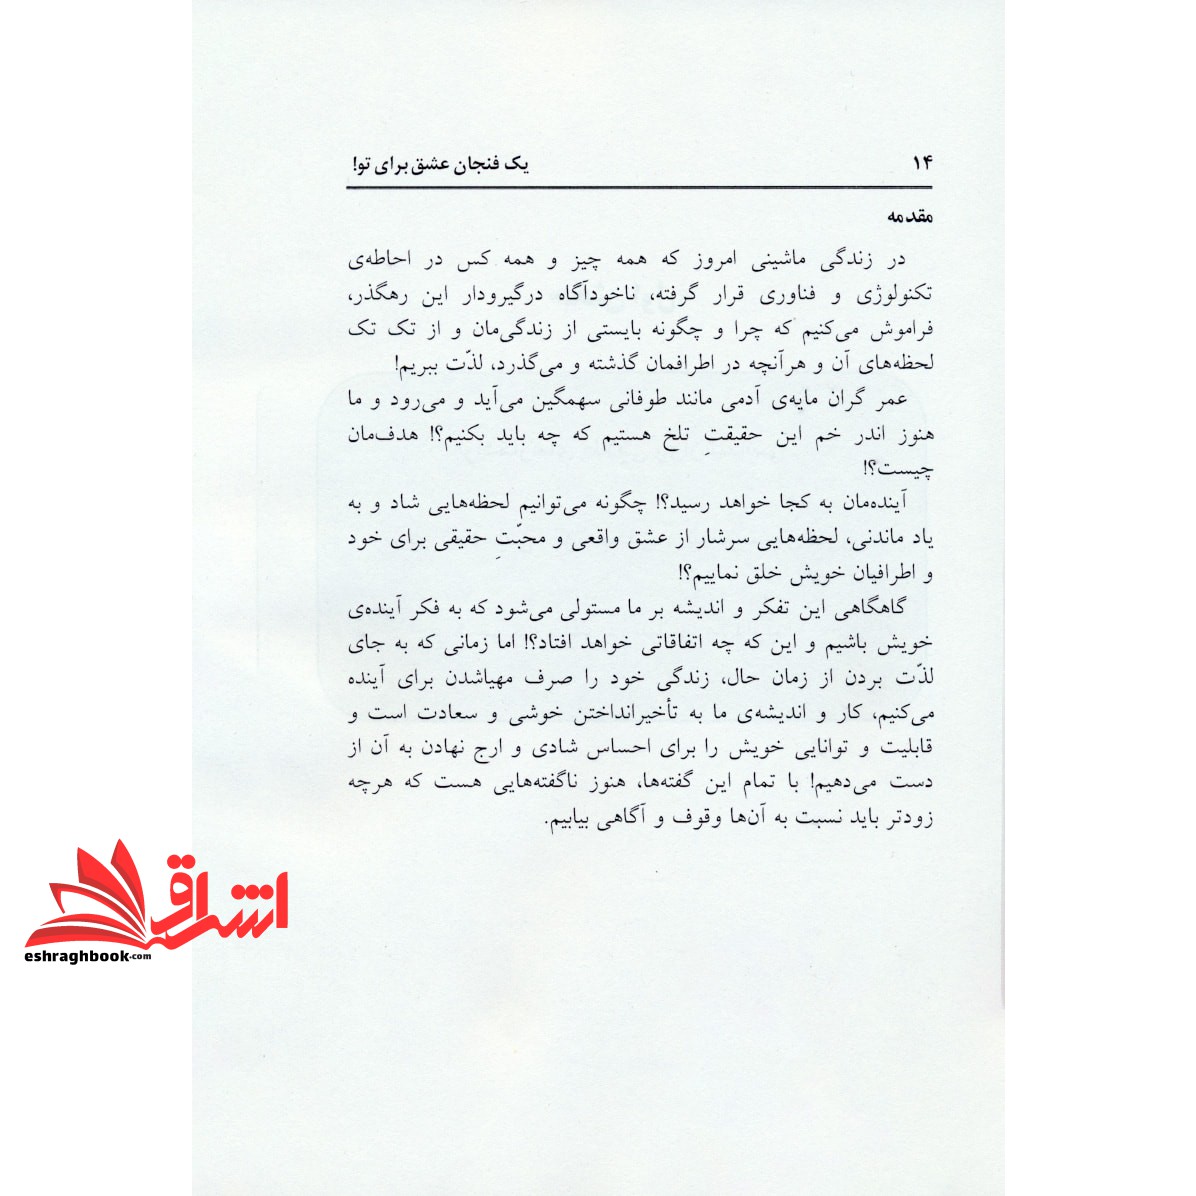 ۱۴ یک فنجان عشق برای تو!
مقدمه
در زندگی ماشینی امروز که همه چیز و همه کس در احاطه‌ی
تکنولوژی و فناوری قرار گرفته، ناخودآگاه درگیرودار این رهگذر،
فراموش می‌کنیم که چرا و چگونه بایستی از زندگی‌مان و از تک تک
لحظه‌های آن و هرآنچه در اطرافمان گذشته و می‌گذرد، لذّت ببریم!
عمر گران مایه‌ی آدمی مانند طوفانی سهمگین می‌آید و می‌رود و ما
هنوز اندر خم این حقیقتِ تلخ هستیم که چه باید بکنیم؟! هدف‌مان
چیست؟!
آینده‌مان به کجا خواهد رسید؟! چگونه می‌توانیم لحظه‌هایی شاد و به
یاد ماندنی، لحظه‌هایی سرشار از عشق واقعی و محبّتِ حقیقی برای خود
و اطرافیان خویش خلق نماییم؟!
گاهگاهی این تفکر و اندیشه بر ما مستولی می‌شود که به فکر آینده‌ی
خویش باشیم و این که چه اتفاقاتی خواهد افتاد؟! اما زمانی که به جای
لذّت بردن از زمان حال، زندگی خود را صرف مهیاشدن برای آینده
می‌کنیم، کار و اندیشه‌ی ما به تأخیرانداختن خوشی و سعادت است و
قابلیت و توانایی خویش را برای احساس شادی و ارج نهادن به آن از
دست می‌دهیم! با تمام این گفته‌ها، هنوز ناگفته‌هایی هست که هرچه
زودتر باید نسبت به آن‌ها وقوف و آگاهی بیابیم.
اشراق
eshraghbook.com